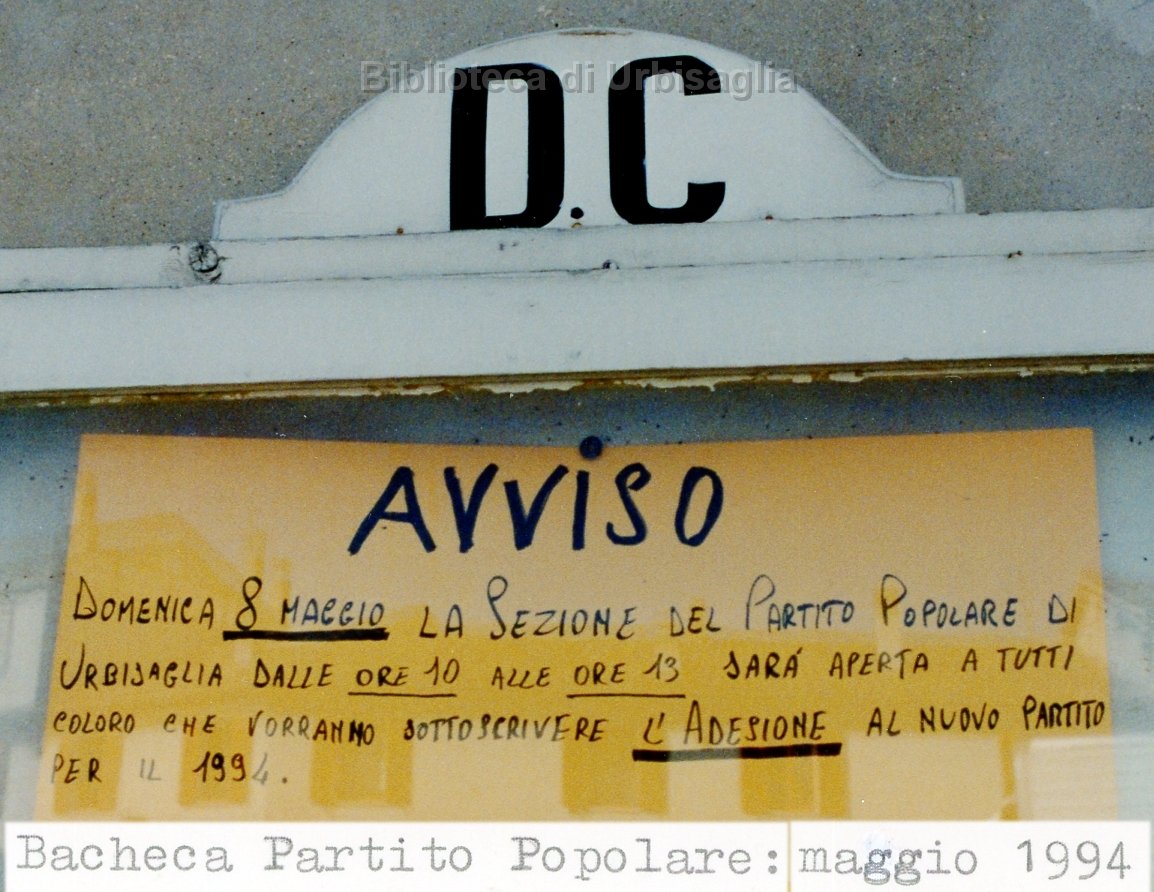 Biblioteca di Urbisaglia
D.C
AVVISO
DOMENICA 8 MAGGIO LA SEZIONE DEL PARTITO POPOLARE DI
URBISAGLIA DALLE ORE 10 ALLE ORE 13 SARÁ APERTA A TUTTI
COLORO CHE VORRANNO SOTTOSCRIVERE L'ADESIONE AL NUOVO PARTITO
PER IL 1994.
Bacheca Partito Popolare: maggio 1994